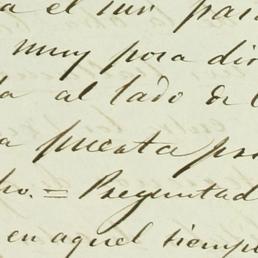 a el sur para
muy poca di
ta al lado de
a puerta pr
ho. = Preguntad
en aquel tiempo